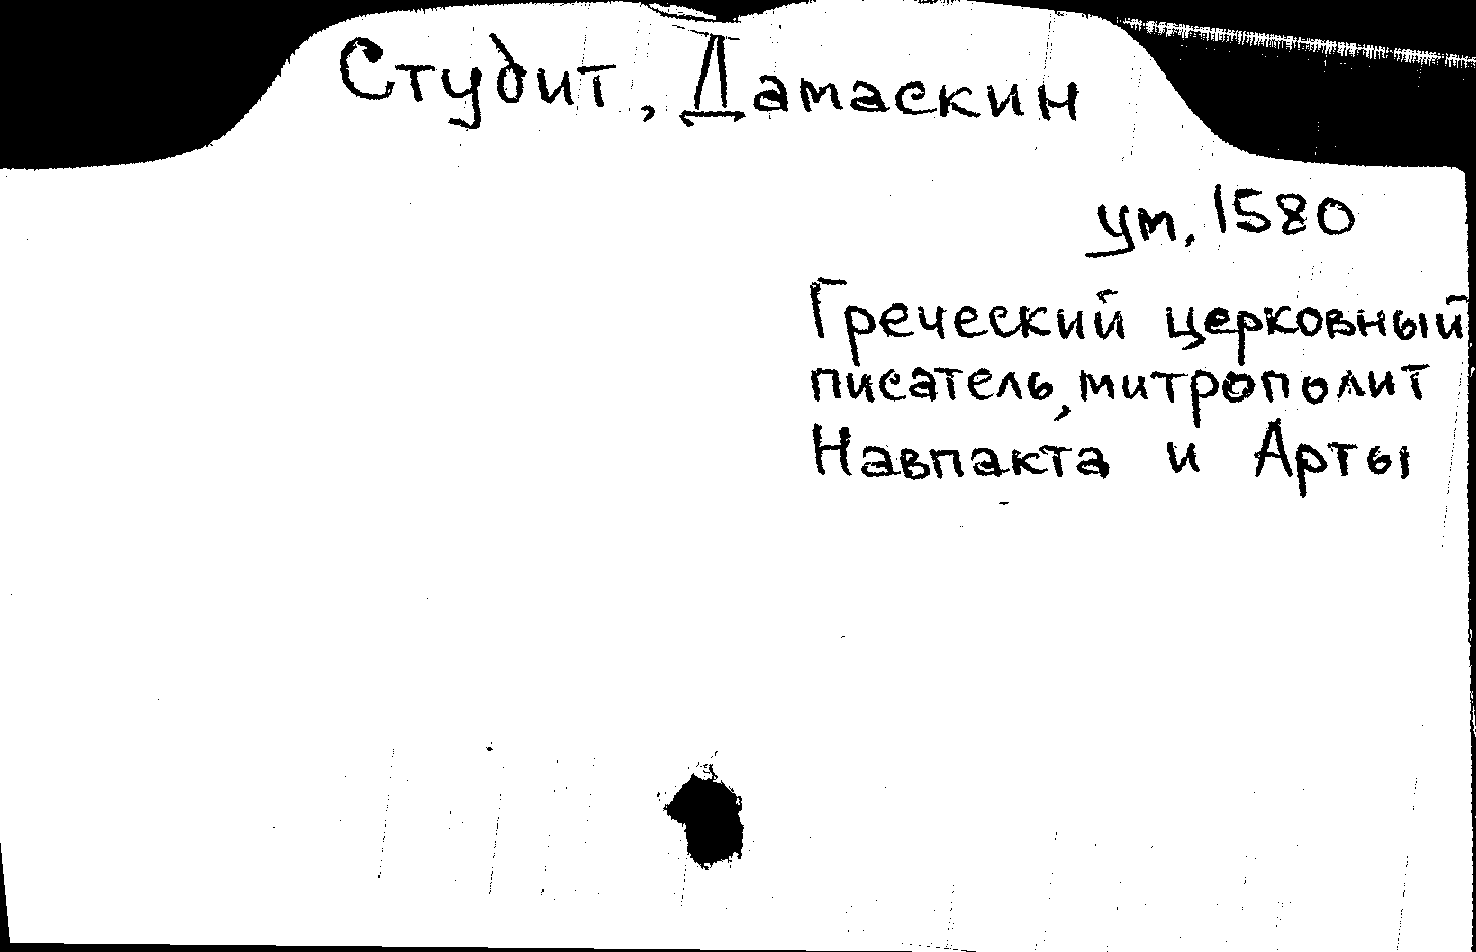 Студит, Дамаскин
ум. 1580
Греческий церковный
писатель, митрополит
Навпакта и Арты